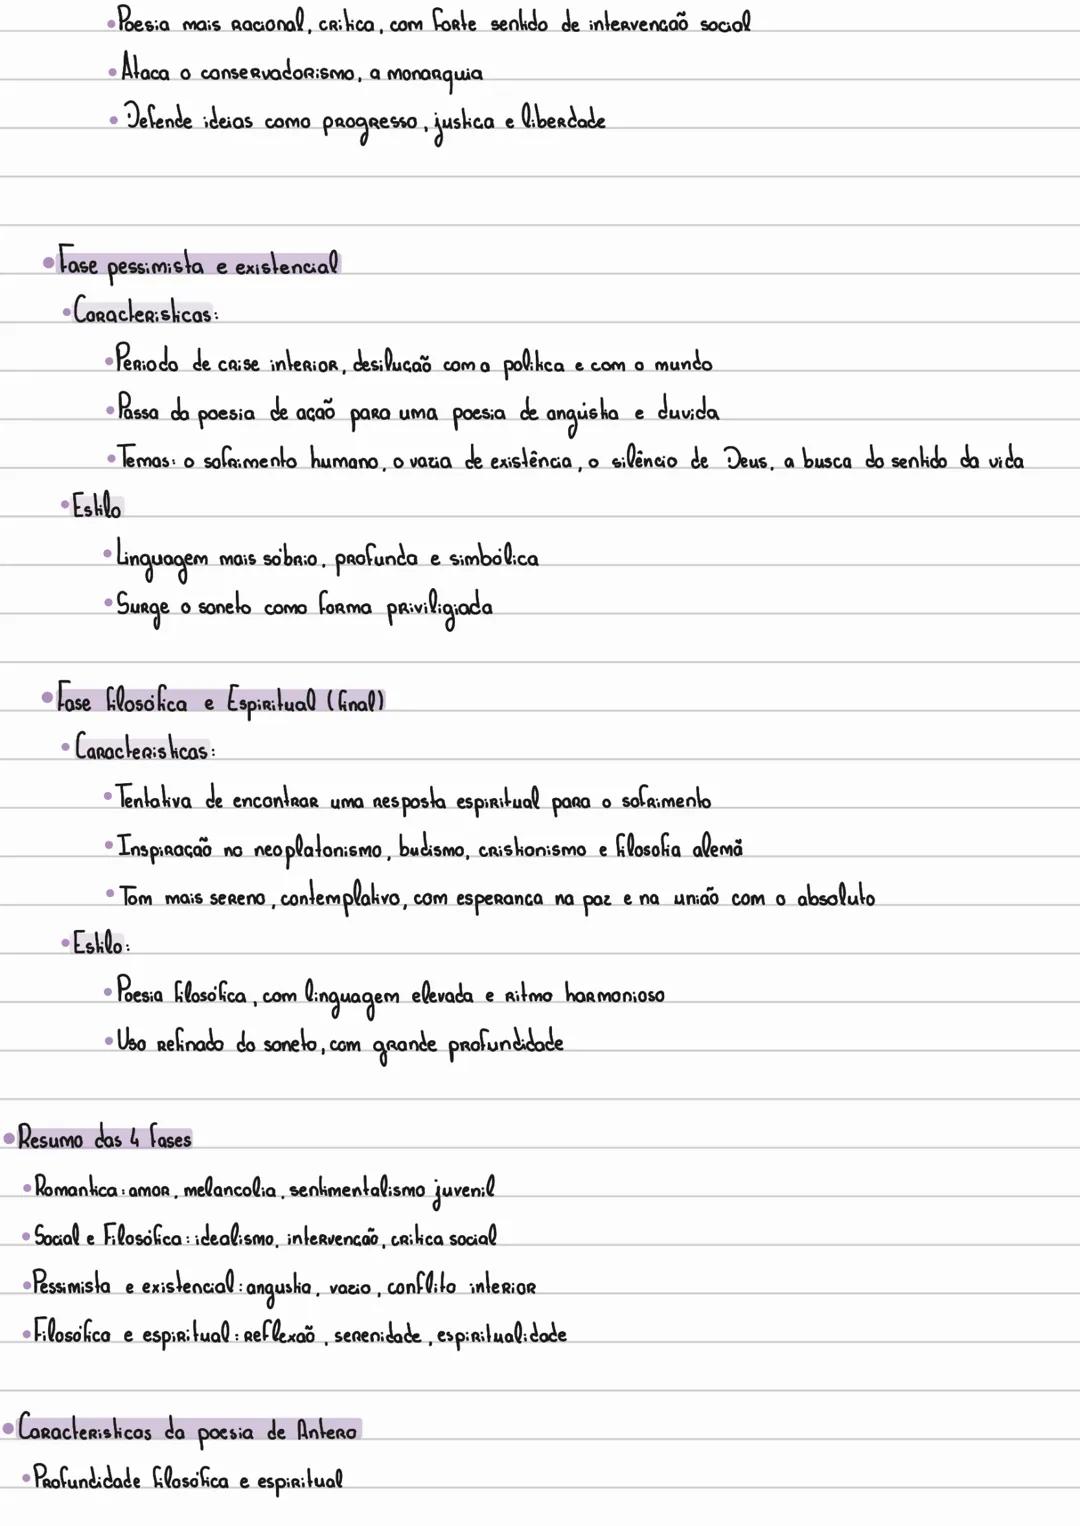 •Poesia mais racional, crítica, com forte sentido de intervencaõ social
•Ataca o conservadorismo, a monarquia
•Defende ideias como progresso, justica e liberdade
•Fase pessimista e existencial
•Caracteristicas:
•Periodo de crise interior, desilucaõ com a politica e com o mundo
•Passa da poesia de açaõ para uma poesia de angústia e duvida
•Temas: o sofrimento humano, o vazia de existência, o silêncio de Deus, a busca do sentido da vida
•Estilo
•Linguagem mais sóbrio, profunda e simbólica
•Surge o soneto como forma priviligiada
•Fase filosófica e Espiritual (final)
•Caracteristicas:
•Tentativa de encontrar uma resposta espiritual para o sofrimento
•Inspiraçaõ no neoplatonismo, budismo, cristionismo e filosofia alemã
•Tom mais sereno, contemplativo, com esperanca na paz e na uniaõ com o absoluto
•Estilo:
•Poesia filosófica, com linguagem elevada e ritmo harmonioso
•Uso refinado do soneto, com grande profundidade
•Resumo das 4 fases
•Romantica: amor, melancolia, sentimentalismo juvenil
•Social e Filosófica: idealismo, intervencaõ, critica social
•Pessimista e existencial: angustia, vazio, conflito interior
•Filosófica e espiritual: reflexaõ, serenidade, espiritualidade
•Caracteristicas da poesia de Antero
•Profundidade filosófica e espiritual